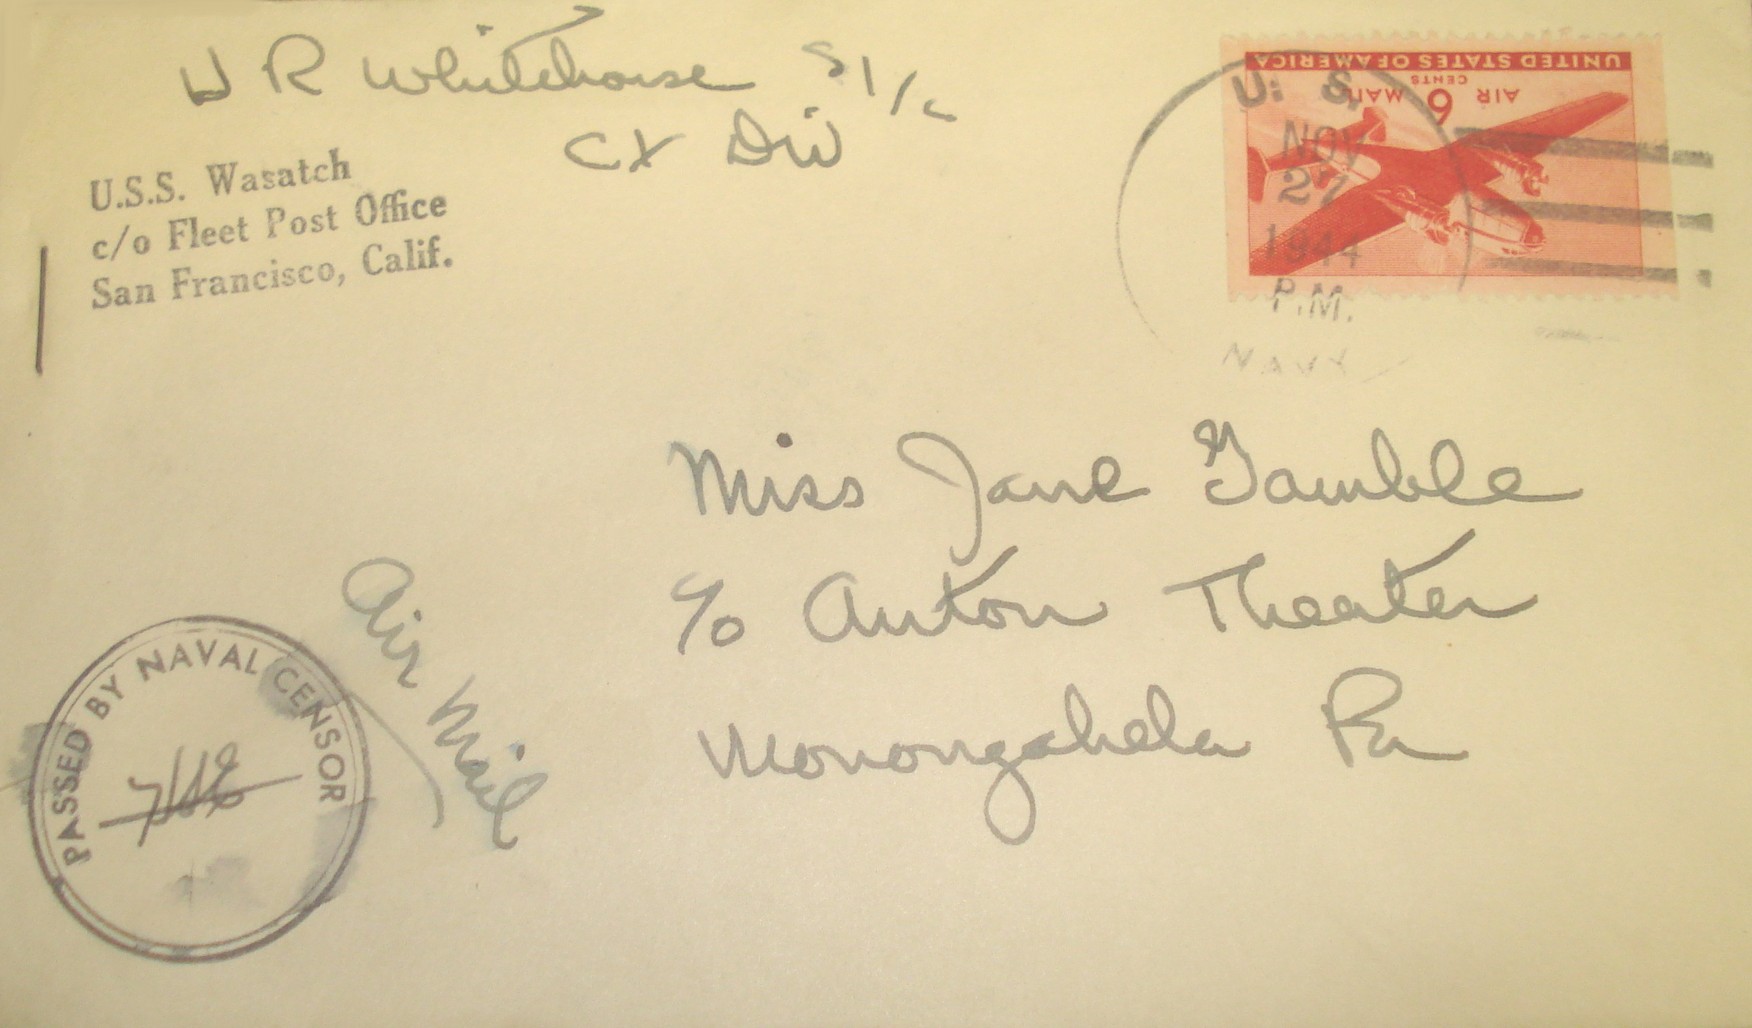 W R Whitehouse S 1/c
CX Div
U.S.S. Wasatch
c/o Fleet Post Office
San Francisco, Calif.
UNITED STATES OF AMERICA
6 CENTS
AIR MAIL
U. S.
NOV
27
1944
P.M.
NAVY
Miss Jane Gamble
c/o Anton Theater
Monongahela Pa
Air Mail
PASSED BY NAVAL CENSOR